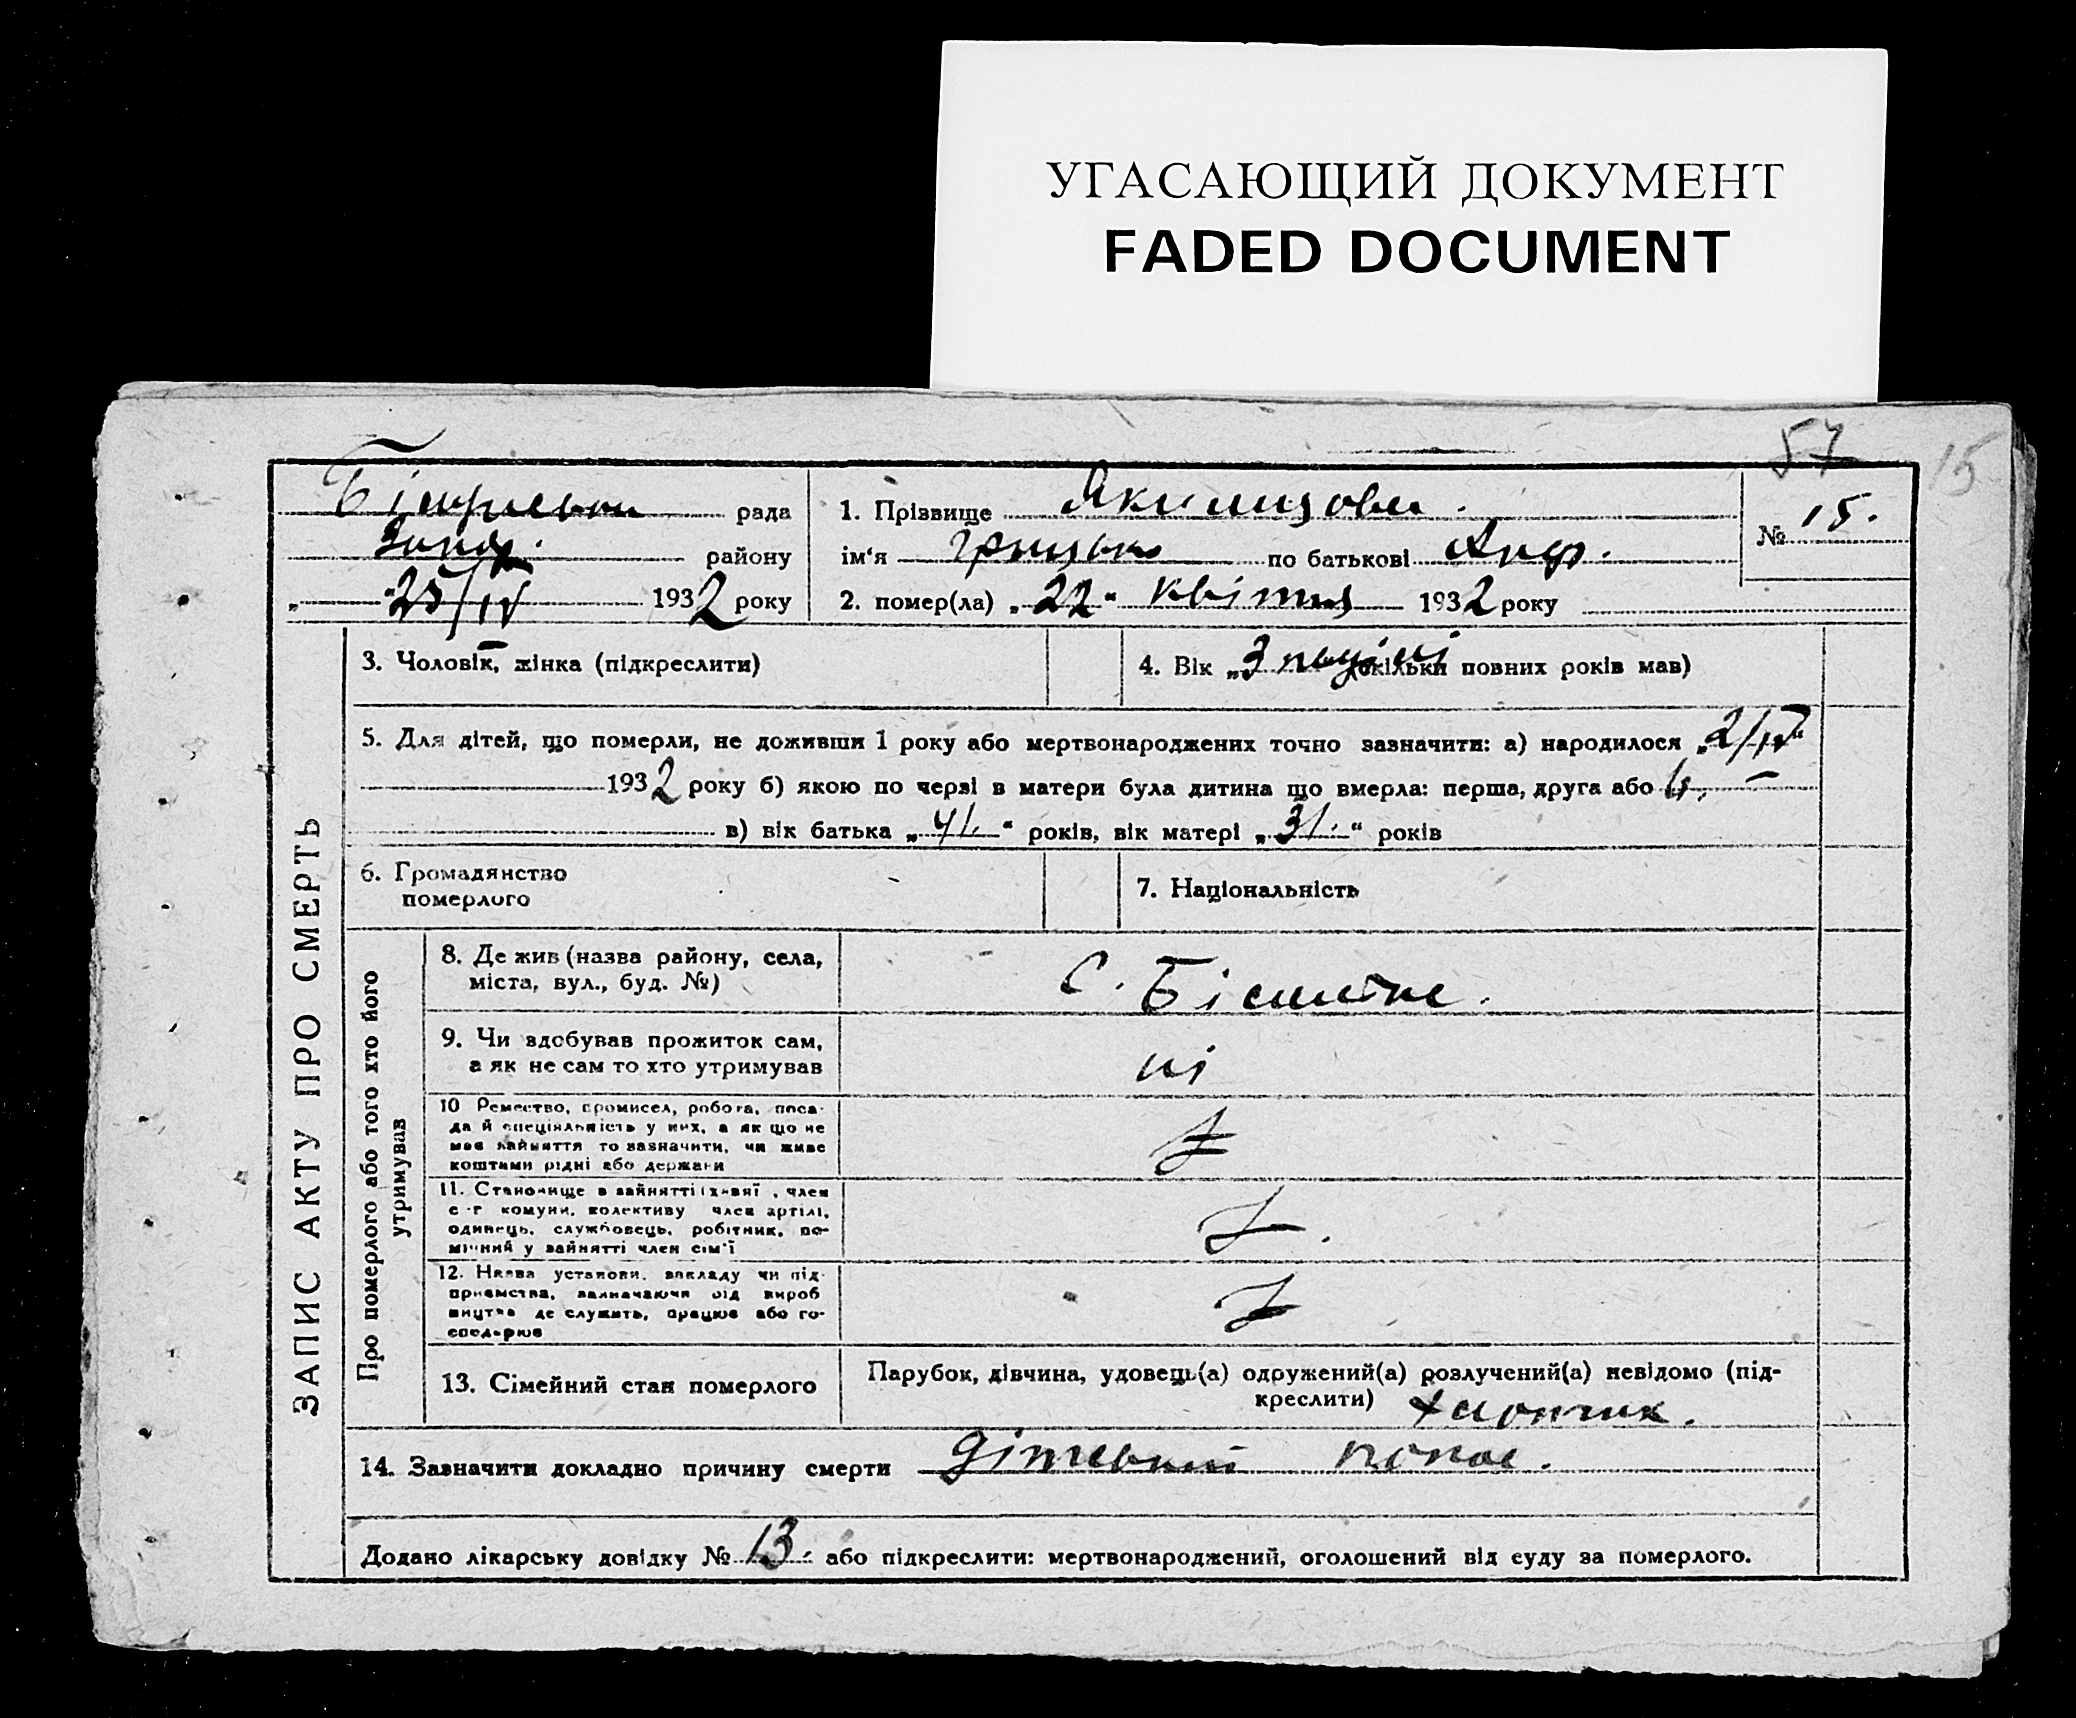 УГАСАЮЩИЙ ДОКУМЕНТ
FADED DOCUMENT
57 15
рада
району
"25/IV 1932 року
1. Прізвище
ім‘я Грицько по батькові
2. помер(ла) „22“ квітня 1932 року
№ 15.
ЗАПИС АКТУ ПРО СМЕРТЬ
3. Чоловік, жінка (підкреслити)
4. Вік „3 неділі (скільки повних років мав)
5. Для дітей, що померли, не доживши 1 року або мертвонароджених точно зазначити: а) народилося „2/IV“
1932 року б) якою по черзі в матери була дитина що вмерла: перша, друга або
в) вік батька „41.“ років, вік матері „31.“ років
6. Громадянство
померлого
7. Національність
Про померлого або того хто його
утримував
8. Де жив (назва району, села,
міста, вул., буд. №)
с.
9. Чи здобував прожиток сам,
а як не сам то хто утримував
ні
10 Ремество, промисел, робота, поса-
да й спеціяльність у них, а як що не
мав зайняття то зазначити, чи живе
коштами рідні або держави
11. Становище в зайнятті (хазяї , член
с-г комуни, колективу член артілі,
одинець, службовець, робітник, по-
мічний у зайнятті член сім‘ї
12. Назва установи, закладу чи під-
приємства, зазначаючи від вироб
ництва де служить, працює або го-
сподарює
13. Сімейний стан померлого
Парубок, дівчина, удовець(а) одружений(а) розлучений(а) невідомо (під-
креслити) хлопчик.
14. Зазначити докладно причину смерти дітевний понос.
Додано лікарську довідку № 13. або підкреслити: мертвонароджений, оголошений від суду за померлого.